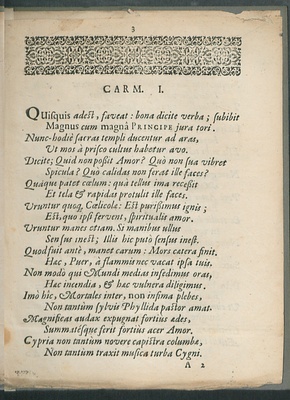 3
CARM. I.
QUisquis adest, faveat: bona dicite verba; subibit
Magnus cum magnâ PRINCIPE jura tori.
Nunc-hodiè sacras templi ducentur ad aras,
Ut mos à prisco cultus habetur avo.
Dicite; Quid non possit Amor? Quò non sua vibret
Spicula? Quò calidas non ferat ille faces?
Quàque patet cœlum: quà tellus ima recessit
Et tela & rapidas protulit ille faces.
Uruntur quoq; Cœlicolæ: Est purissimus ignis;
Est, quo ipsi fervent, spiritualis amor.
Uruntur manes etiam. Si manibus ullus
Sensus inest; Illis hic putò sensus inest.
Quod sunt antè, manet carum: Mors cætera finit.
Hac, Puer, à flammis nec vacat ipsa tuis.
Non modò qui Mundi medias insedimus oras,
Hæc incendia, & hæc vulnera diligimus.
Imò hîc, Mortales inter, non infima plebes,
Non tantùm sylvis Phyllida pastor amat.
Magnificas audax expugnat fortius ades,
Summatésque ferit fortius acer Amor.
Cypria non tantùm novere capistra columbæ,
Non tantùm traxit musica turba Cygni.
A 2